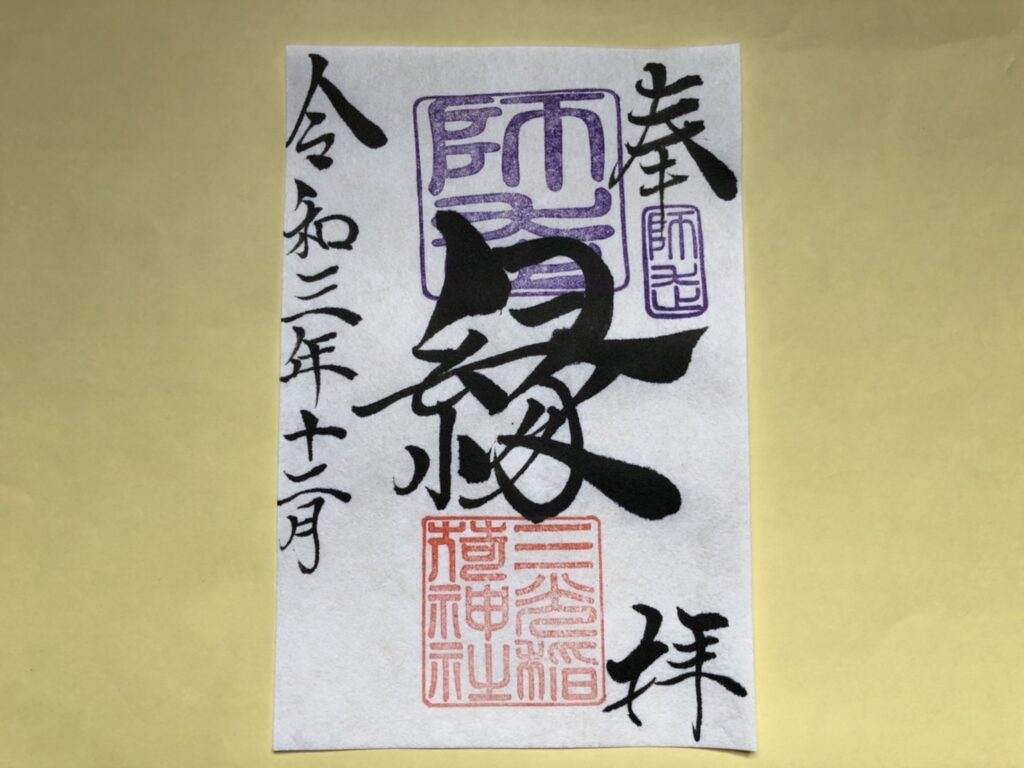 奉拝
師走
師走
縁
三光稲
荷神社
令和三年十二月